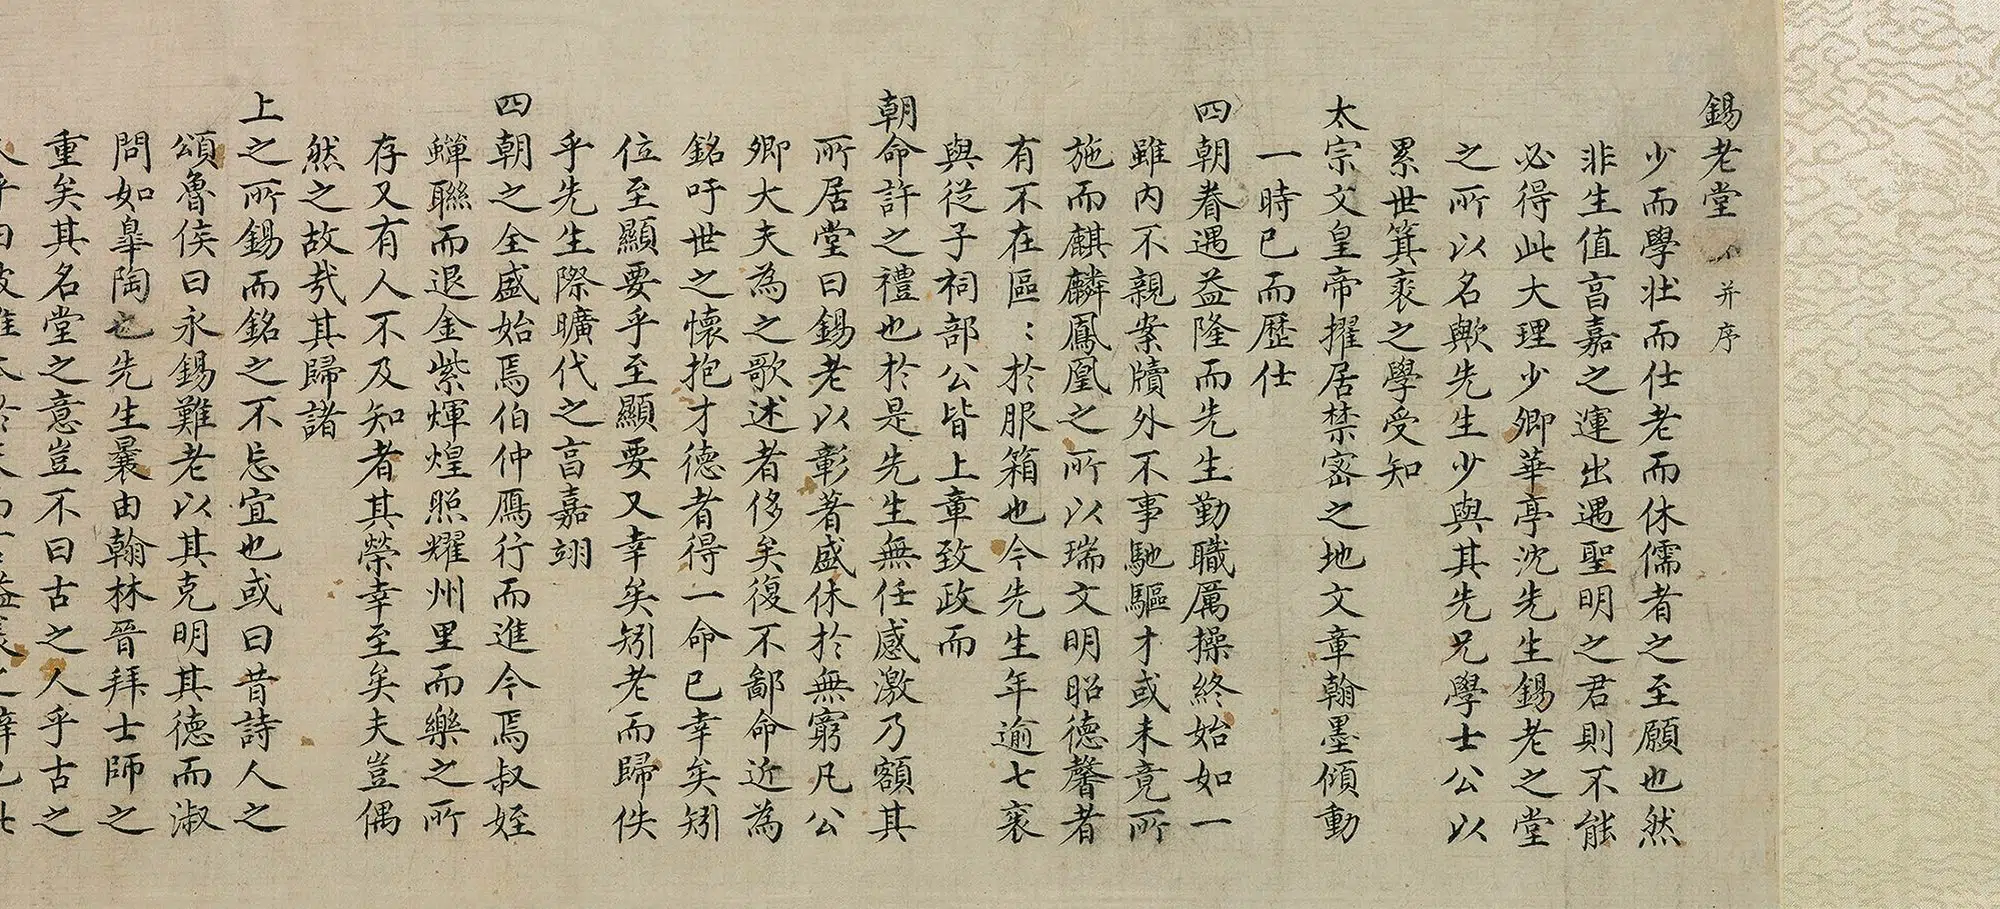 錫老堂 并序
少而學壯而仕老而休儒者之至願也然
非生值亨嘉之運出遇聖明之君則不能
必得此大理少卿華亭沈先生錫老之堂
之所以名歟先生少與其先兄學士公以
累世箕裘之學受知
太宗文皇帝擢居禁密之地文章翰墨傾動
一時已而歷仕
四朝眷遇益隆而先生勤職厲操終始如一
雖內不親案牘外不事馳驅才或未竟所
施而麒麟鳳凰之所以瑞文明昭德馨者
有不在區：於服箱也今先生年逾七袠
與從子祠部公皆上章致政而
朝命許之禮也於是先生無任感激乃額其
所居堂曰錫老以彰著盛休於無窮凡公
卿大夫為之歌述者侈矣復不鄙命近為
銘吁世之懷抱才德者得一命已幸矣矧
位至顯要乎至顯要又幸矣矧老而歸佚
乎先生際曠代之亨嘉翊
四朝之全盛始焉伯仲鴈行而進今焉叔姪
蟬聯而退金紫煇煌照耀州里而樂之所
存又有人不及知者其榮幸至矣夫豈偶
然之故哉其歸諸
上之所錫而銘之不忘宜也或曰昔詩人之
頌魯侯曰永錫難老以其克明其德而淑
問如皐陶也先生曩由翰林晉拜士師之
重矣其名堂之意豈不曰古之人乎古之